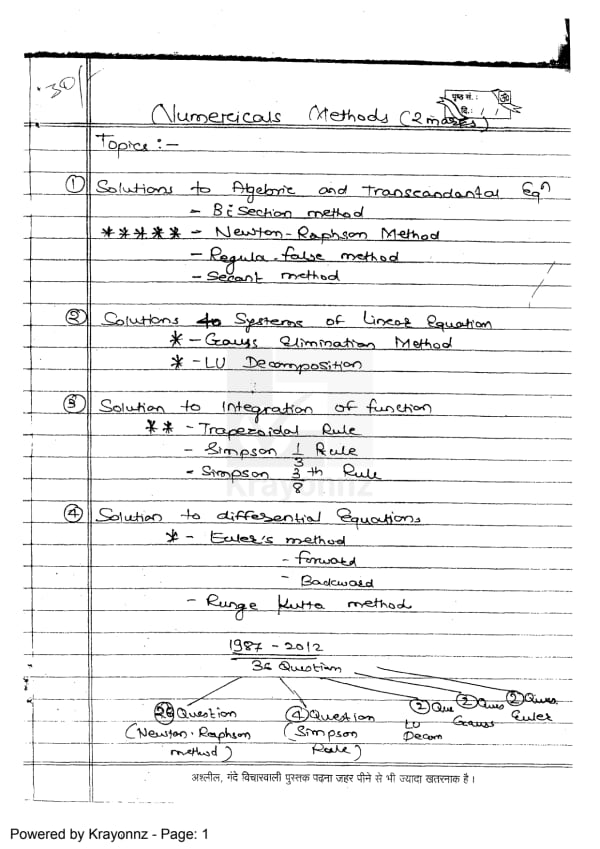 30/
पृष्ठ सं.: ॐ
दि.: / /
Numercicals Methods (2 marks)
Topics :-
① Solutions to Algebric and Transcandantal Eqⁿ
- Bisection method
***** - Newton-Raphson Method
- Regula-false method
- Secant method
② Solutions to Systems of Linear Equation
* - Gauss Elimination Method
* - LU Decomposition
③ Solution to Integration of function
** - Trapezoidal Rule
- Simpson 1/3 Rule
- Simpson 3/8 th Rule
④ Solution to differential Equations
* - Euler's method
- forward
- Backward
- Runge Kutta method
1987 - 2012
36 Question
Question ④ Question ② Que ② Ques ② Ques
(Newton-Raphson method) (Simpson Rule) LU Decom Gauss Euler
अश्लील, गंदे विचारवाली पुस्तक पढ़ना जहर पीने से भी ज्यादा खतरनाक है।
Krayonnz
Powered by Krayonnz - Page: 1